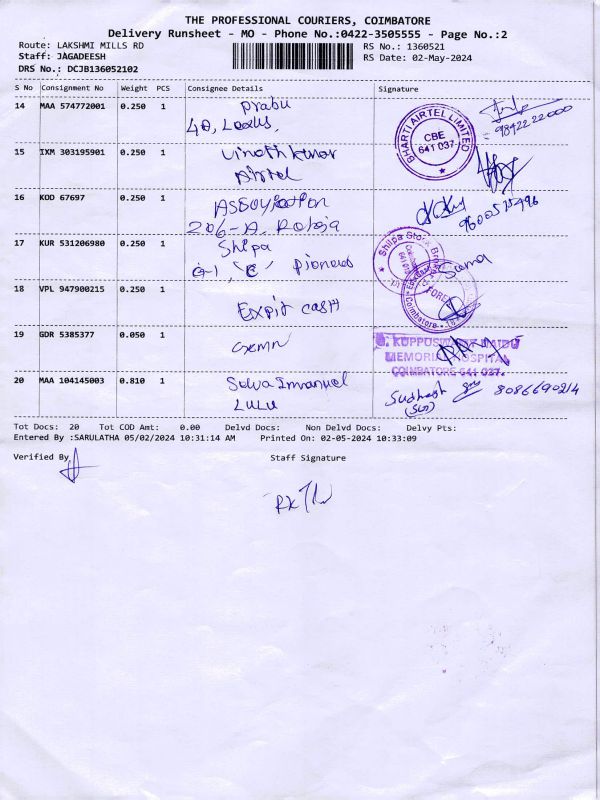 THE PROFESSIONAL COURIERS, COIMBATORE
Delivery Runsheet - MO - Phone No.:0422-3505555 - Page No.:2
Route: LAKSHMI MILLS RD
RS No.: 1360521
Staff: JAGADEESH
RS Date: 02-May-2024
DRS No.: DCJB136052102
S No Consignment No Weight PCS Consignee Details Signature
14 MAA 574772001 0.250 1 Prabu
40, Lexus,
9842222000
BHARTI AIRTEL LIMITED
CBE
641 037
15 IXM 303195901 0.250 1 Vinothkumar
Airtel
16 KOD 67697 0.250 1 Association
206-A, Raheja
9600575496
17 KUR 531206980 0.250 1 Shilpa
G-1, "C" Pioneer
Shilpa Stock
Suma
18 VPL 947900215 0.250 1 Expit cash
Coimbatore
19 GDR 5385377 0.050 1 GKMN
G. KUPPUSWAMY NAIDU
MEMORIAL HOSPITAL
COIMBATORE-641 037.
20 MAA 104145003 0.810 1 Selva Immanuel
LULU
Sudhesh 8086690214
Tot Docs: 20 Tot COD Amt: 0.00 Delvd Docs: Non Delvd Docs: Delvy Pts:
Entered By :SARULATHA 05/02/2024 10:31:14 AM Printed On: 02-05-2024 10:33:09
Verified By
Staff Signature